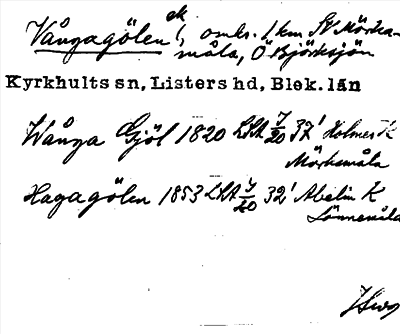 Vångagölen ek, omkr. 1 km SV Mörka-
måla, Ö Björksjön
Kyrkhults sn, Listers hd, Blek. län
Wånga Gjöl 1820 LSA 7/20 37' Holmer K
Mörkemåla
Hagagölen 1853 LSA 7/20 32' Abelin K
Lönnemåla